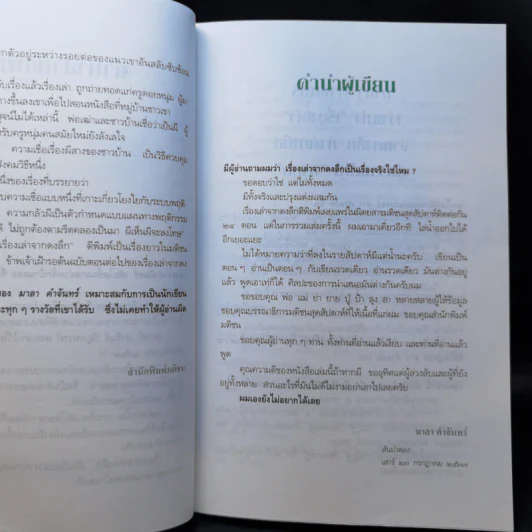 กตัวอยู่ระหว่างรอยต่อของแนวเขาอันสลับซับซ้อน
ับเรื่องแล้วเรื่องเล่า ถูกถ่ายทอดแก่ครูดอยหนุ่ม ผู้
างขึ้นลงเขาเพื่อไปสอนหนังสือที่หมู่บ้านชาวเขา
จน์ไม่ได้เหล่านี้ พ่อเฒ่าและชาวบ้านเชื่อว่าเป็นผี ผู้
รับครูหนุ่มคนสมัยใหม่ยังลังเลใจ
ความเชื่อเรื่องผีสางของชาวบ้าน เป็นวิธีควบคุม
ังคมวิธีหนึ่ง
นึ่งของเรื่องที่บรรยายว่า
บความเชื่อแบบหนึ่งที่เกาะเกี่ยวโยงใยกับระบบพฤติ
ความกลัวผีเป็นตัวกำหนดแบบแผนทางพฤติกรรม
ดี ไม่ถูกต้องตามรีตคลองเป็นมา ผีเห็นผีจะลงโทษ"
เรื่องเล่าจากดงลึก" ตีพิมพ์เป็นเรื่องยาวในมติชน
ข้าพเจ้าเฝ้ารอต้นฉบับตอนต่อไปของเรื่องเล่าจากดง
ของ มาลา คำจันทร์ เหมาะสมกับการเป็นนักเขียน
ะทุก ๆ รางวัลที่เขาได้รับ ซึ่งไม่เคยทำให้ผู้อ่านผิด
สำนักพิมพ์
คำนำผู้เขียน
มีผู้อ่านถามผมว่า เรื่องเล่าจากดงลึกเป็นเรื่องจริงใช่ไหม ?
ขอตอบว่าใช่ แต่ไม่ทั้งหมด
มีทั้งจริงและปรุงแต่งผสมกัน
เรื่องเล่าจากดงลึกตีพิมพ์เผยแพร่ในมติชนสุดสัปดาห์ติดต่อกัน
๒๔ ตอน แต่ในการรวมเล่มครั้งนี้ ผมเอามาเดี่ยวอีกที ไล่น้ำออกไปได้
อีกเยอะแยะ
ไม่ได้หมายความว่าที่ลงในรายสัปดาห์มีแต่น้ำนะครับ เขียนเป็น
ตอน ๆ อ่านเป็นตอน ๆ กับเขียนรวดเดียว อ่านรวดเดียว มันต่างกันอยู่
แล้ว พูดเอาเท่ก็ได้ ศิลปะของการนำเสนอมันต่างกันครับผม
ขอขอบคุณ พ่อ แม่ ย่า ยาย ปู่ ป้า ลุง อา หลายหลายผู้ให้ข้อมูล
ขอบคุณบรรณาธิการมติชนสุดสัปดาห์ที่ให้เนื้อที่แก่ผม ขอบคุณสำนักพิมพ์
มติชน
ขอบคุณผู้อ่านทุก ๆ ท่าน ทั้งท่านที่อ่านแล้วเงียบ และท่านที่อ่านแล้ว
พูด
คุณความดีของหนังสือเล่มนี้ถ้าหากมี ขออุทิศแด่ผู้ล่วงลับและผู้ที่ยัง
อยู่ทั้งหลาย ส่วนอะไรที่มันไม่ดีไม่งามอย่าเอาไปเลยครับ
ผมเองยังไม่อยากได้เลย
มาลา คำจันทร์
เสาร์ ๒๓ กรกฎาคม ๒๕๓๗